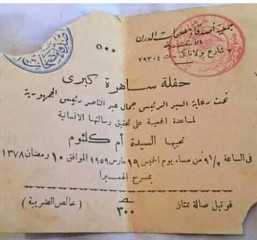 جمعية أصدقاء مرضى الدرن
٥٠٠
حفلة ساهرة كبرى
تحت رعاية السيد الرئيس جمال عبد الناصر رئيس الجمهورية
لمساعدة الجمعية على تحقيق رسالتها الانسانية
تحييها السيدة أم كلثوم
فى الساعة ٩٫٥ من مساء يوم الخميس ١٩ مارس ١٩٥٩ الموافق ١٠ رمضان ١٣٧٨
بمسرح
فوتيل صالة ممتاز
٣٠٠
( خالص الضريبة )